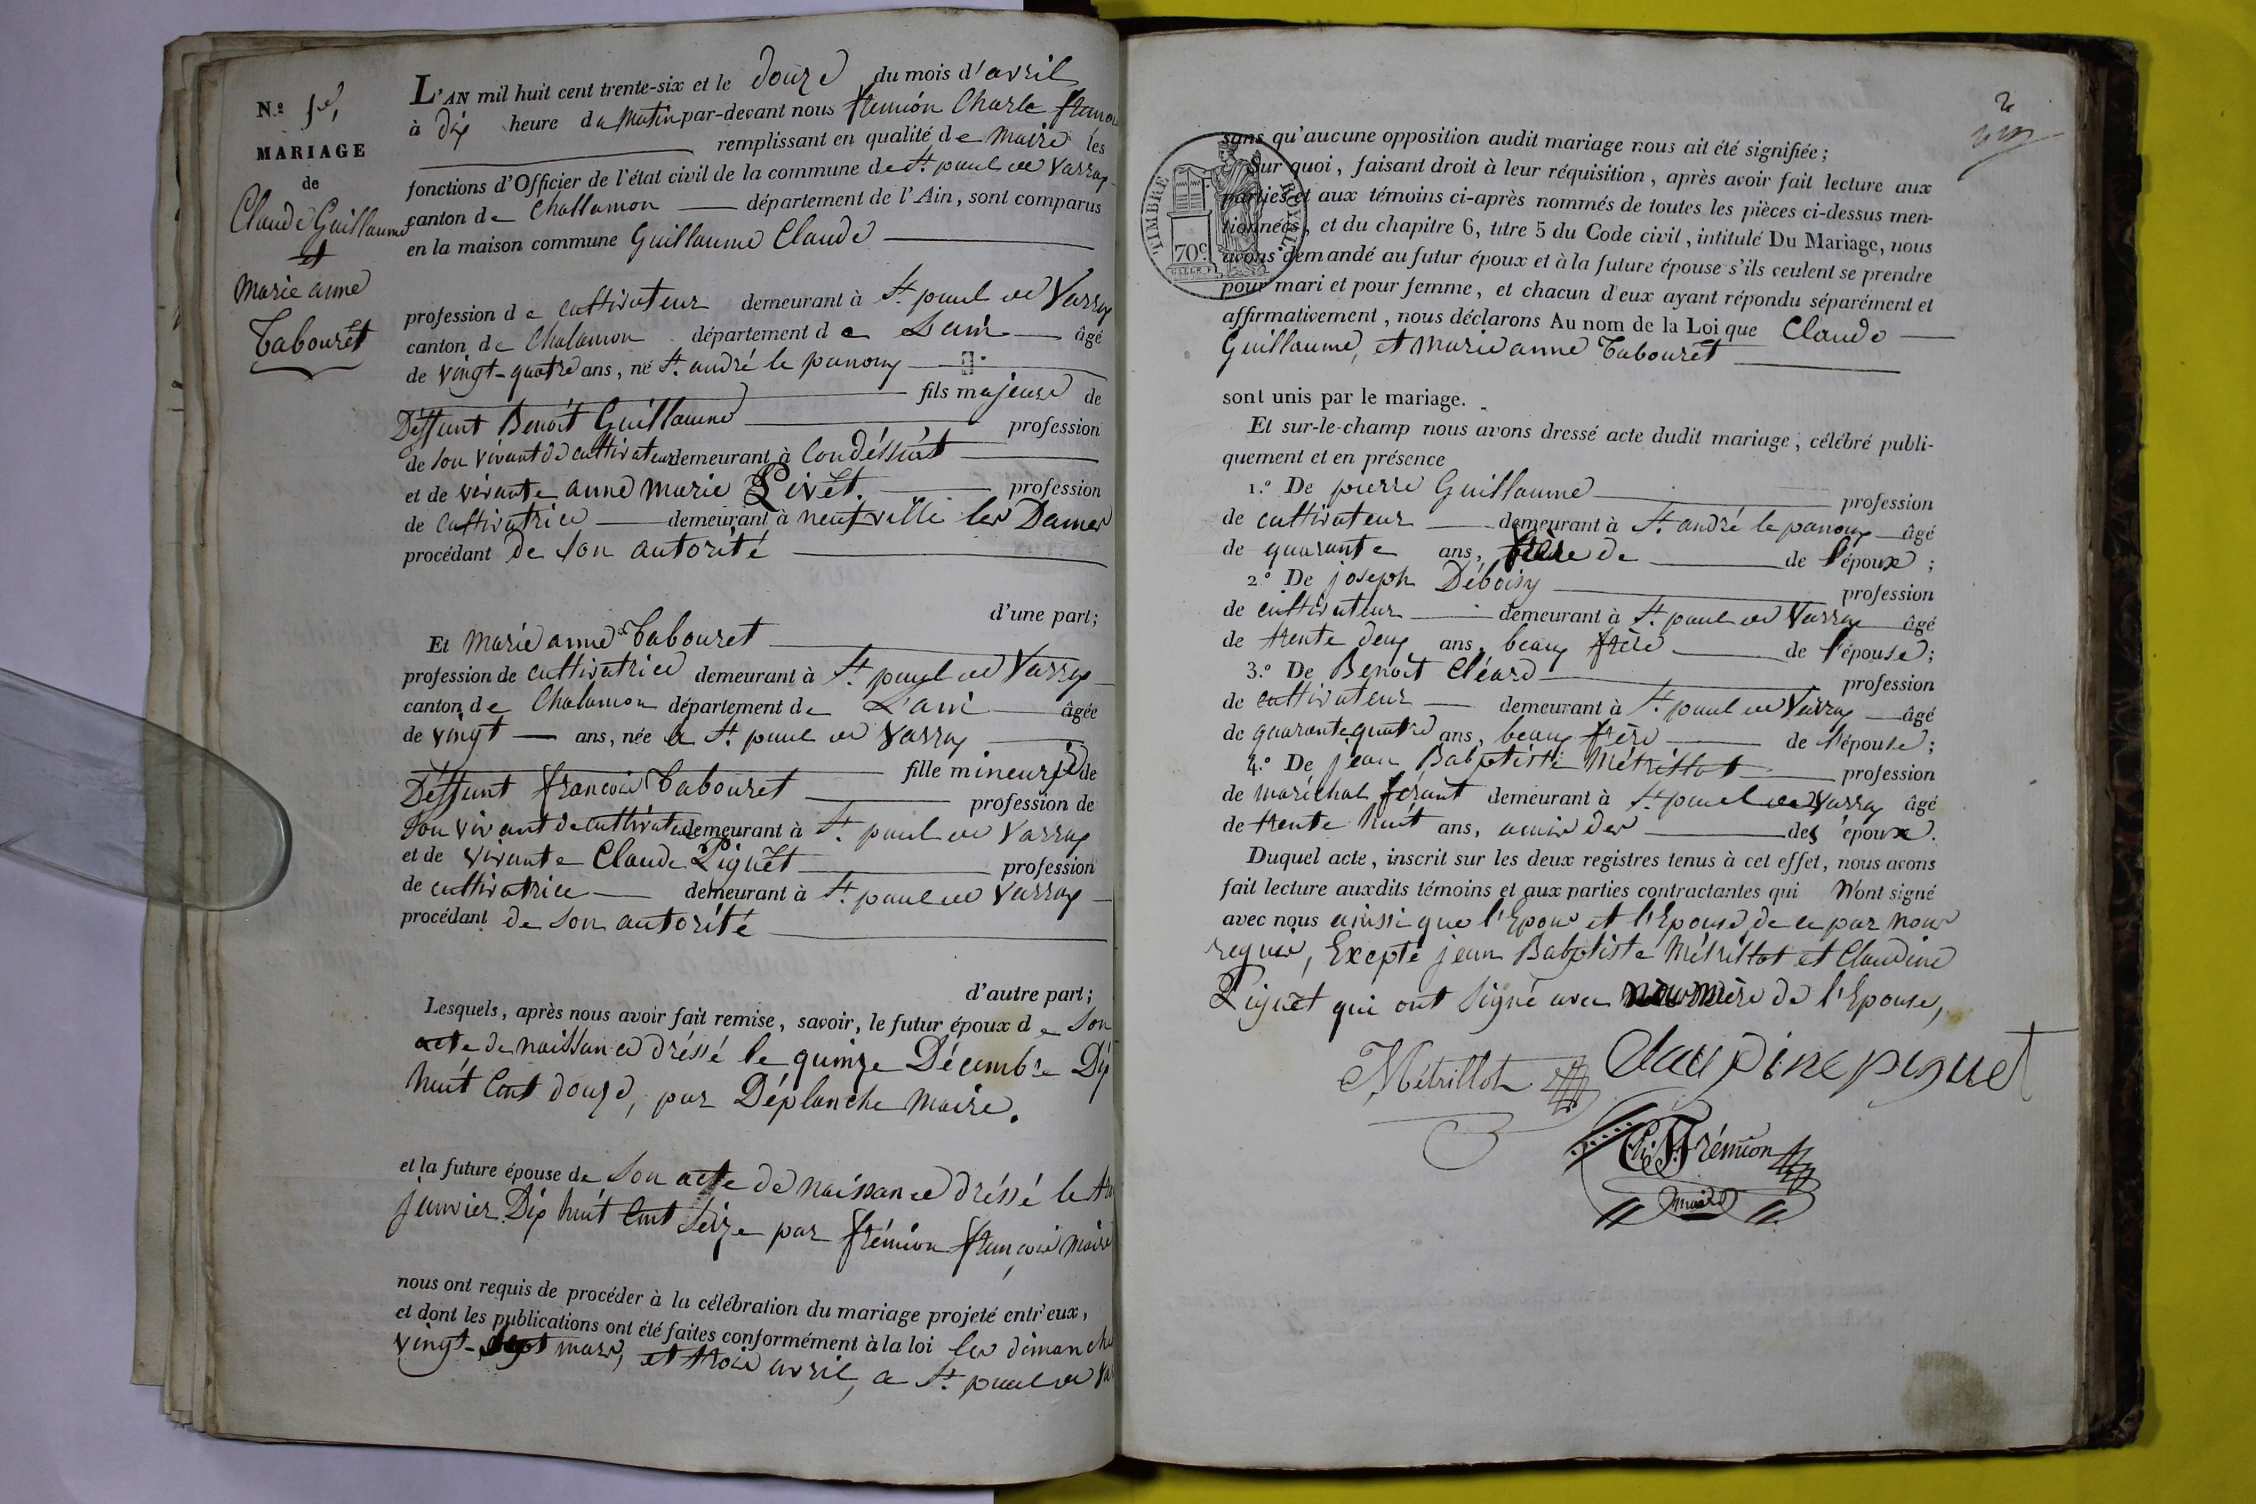 N.º 1er,
MARIAGE
de
Claude Guillaume
et
Marie anne
Tabouret
L'AN mil huit cent trente-six et le douze du mois d'avril
à dix heure du Matin par-devant nous frémion Charle
remplissant en qualité de maire les
fonctions d'Officier de l'état civil de la commune de St. paul de Varray
canton de Challamon département de l'Ain, sont comparus
en la maison commune Guillaume Claude
profession de cultivateur demeurant à St. paul de Varray
canton de Chalamon département de Lain âgé
de vingt-quatre ans, né St. andré le panoux
fils majeure de
Déffunt Benoit Guillaume profession
de son vivant de cultivateur demeurant à Condéssiat
et de vivante anne marie Pivêt. profession
de cultivatrice demeurant à neufville les Dames
procédant de son autorité
d'une part;
Et Marie anne Tabouret
profession de cultivatrice demeurant à St. paul de Varray
canton de Chalamon département de L'ain âgée
de vingt ans, née à St. paul de Varray
fille mineure de
Déffunt françois Tabouret profession de
son vivant de cultivateur demeurant à St. paul de Varray
et de vivante Claude Piguêt profession
de cultivatrice demeurant à St. paul de Varray
procédant de son autorité
d'autre part;
Lesquels, après nous avoir fait remise, savoir, le futur époux de son
acte de naissance dréssé le quinze Décembre Dix
huit Cent douze, par Déplanche Maire.
et la future épouse de son acte de naissance dréssé le
janvier Dix huit Cent seize par frémion françois Maire
nous ont requis de procéder à la célébration du mariage projeté entr'eux,
et dont les publications ont été faites conformément à la loi les dimanche
vingt-sept mars, et trois avril, a St. paul de
2
TIMBRE ROYAL
70c
sans qu'aucune opposition audit mariage nous ait été signifiée;
Sur quoi, faisant droit à leur réquisition, après avoir fait lecture aux
parties et aux témoins ci-après nommés de toutes les pièces ci-dessus men-
tionnées, et du chapitre 6, titre 5 du Code civil, intitulé Du Mariage, nous
avons demandé au futur époux et à la future épouse s'ils veulent se prendre
pour mari et pour femme, et chacun d'eux ayant répondu séparément et
affirmativement, nous déclarons Au nom de la Loi que Claude
Guillaume, et Marie anne Tabouret
sont unis par le mariage.
Et sur-le-champ nous avons dressé acte dudit mariage, célébré publi-
quement et en présence
1.º De pierre Guillaume profession
de cultivateur demeurant à St. andré le panoux âgé
de quarante ans, frère de de l'époux;
2.º De joseph Déboisy profession
de cultivateur demeurant à St. paul de Varray âgé
de trente deux ans, beaux frère de l'épouse;
3.º De Benoit Cléard profession
de cultivateur demeurant à St. paul de Varray âgé
de quarante quatre ans, beaux frère de l'épouse;
4.º De jean Babptiste Métrillot profession
de maréchal férant demeurant à St. paul de Varray âgé
de trente huit ans, amis des des époux.
Duquel acte, inscrit sur les deux registres tenus à cet effet, nous avons
fait lecture auxdits témoins et aux parties contractantes qui N'ont signé
avec nous ainssi que l'Epoux et l'Epouse, de ce par nous
requis, Excépté jean Babptiste Métrillot et Claudine
Piguet qui ont signé avec nous mère de l'Epouse,
Métrillot Claudine piguet
Ch. Frémion
maire